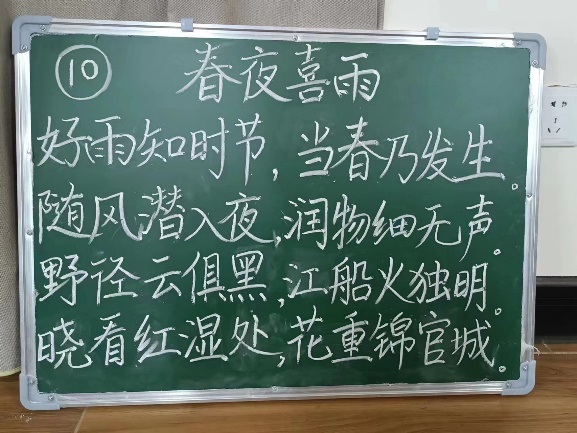 ⑩ 春夜喜雨
好雨知时节,当春乃发生。
随风潜入夜,润物细无声。
野径云俱黑,江船火独明。
晓看红湿处,花重锦官城。